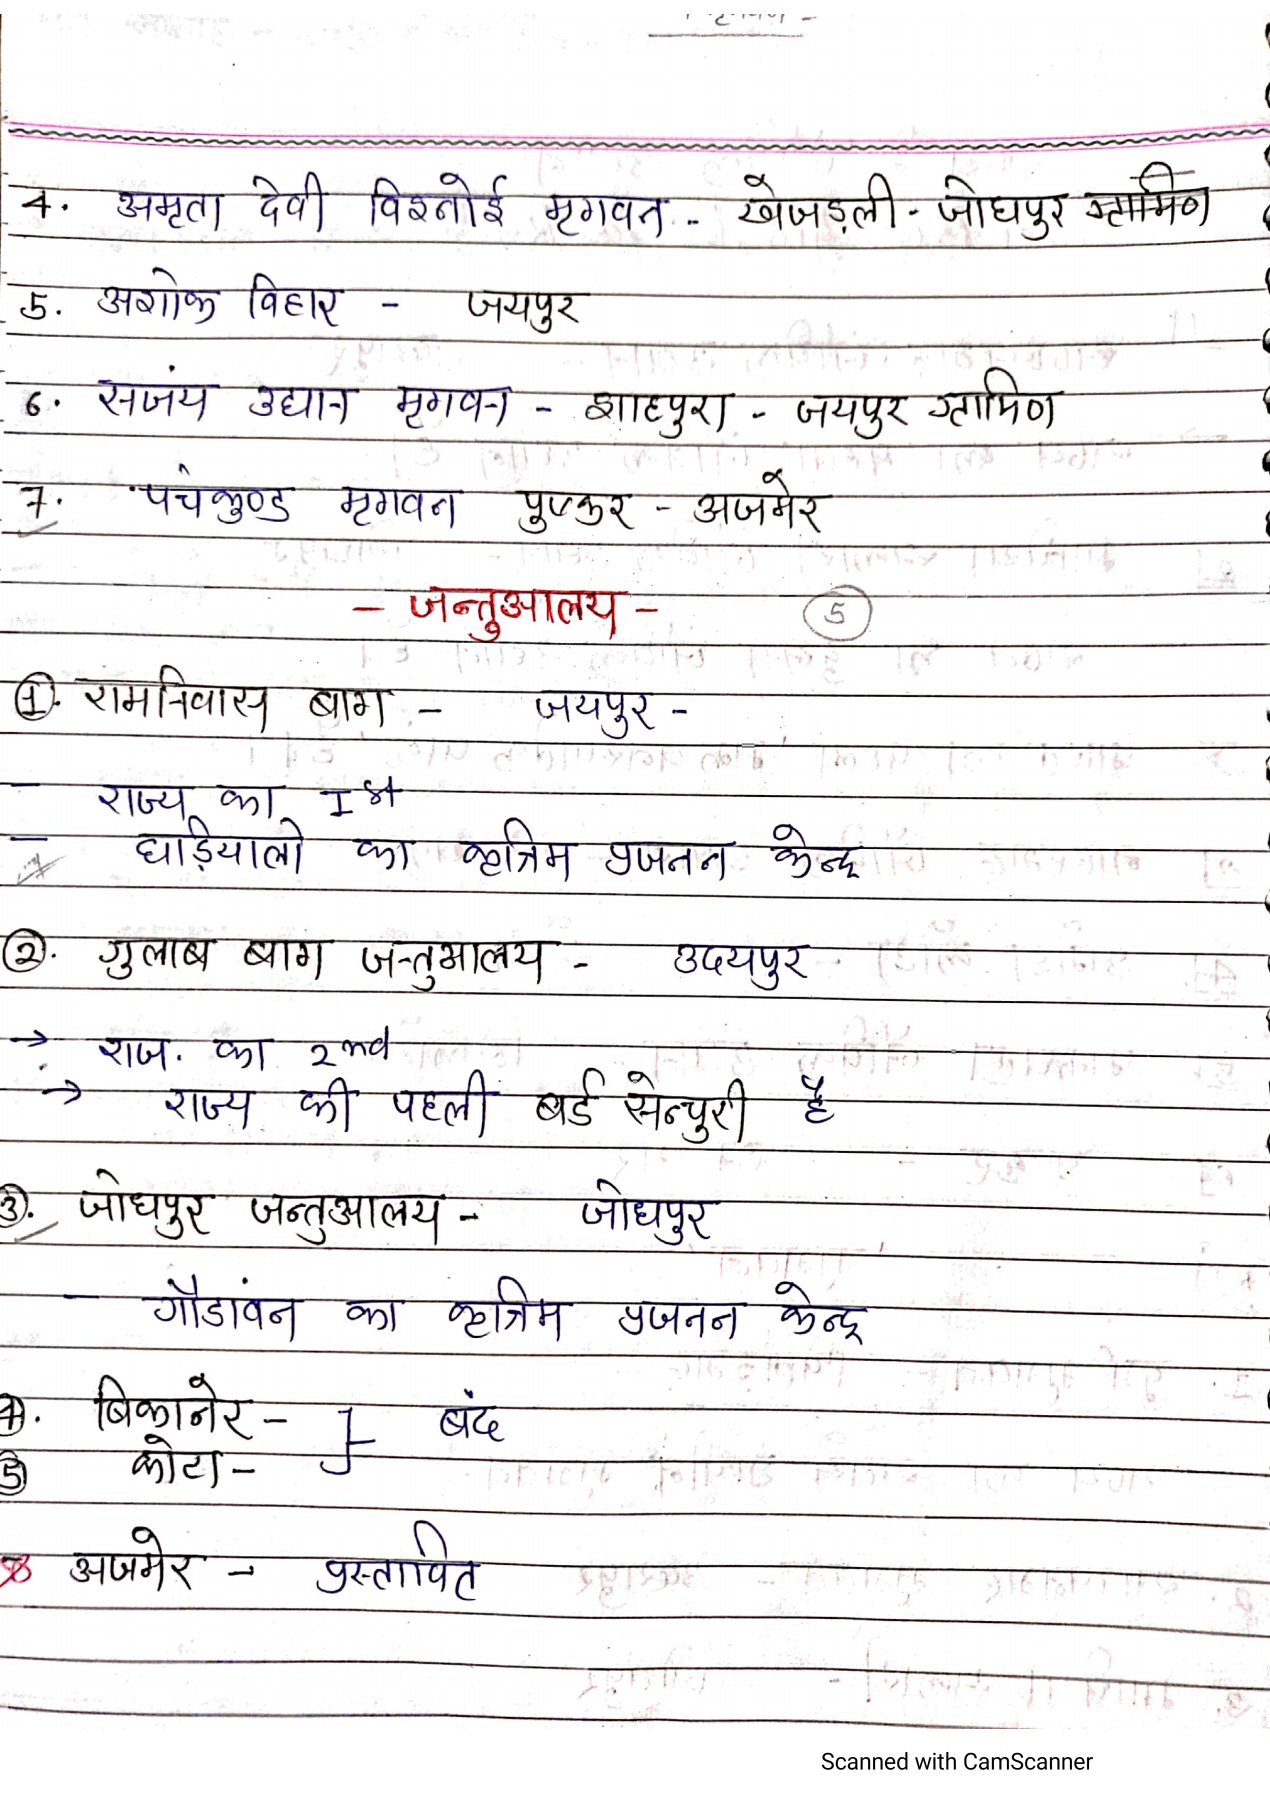 4. अमृता देवी विश्नोई मृगवन - खेजड़ली - जोधपुर ग्रामिण
5. अशोक विहार - जयपुर
6. सजंय उद्यान मृगवन - शाहपुरा - जयपुर ग्रामिण
7. पंचकुण्ड मृगवन पुष्कर - अजमेर
- जन्तुआलय - 5
1. रामनिवास बाग - जयपुर -
- राज्य का Ist
- घड़ियालो का कृत्रिम प्रजनन केन्द्र
2. गुलाब बाग जन्तुआलय - उदयपुर
→ राज. का 2nd
→ राज्य की पहली बर्ड सेन्चुरी है
3. जोधपुर जन्तुआलय - जोधपुर
- गौडांवन का कृत्रिम प्रजनन केन्द्र
4. बिकानेर - बंद
5 कोटा -
अजमेर → प्रस्तावित
Scanned with CamScanner